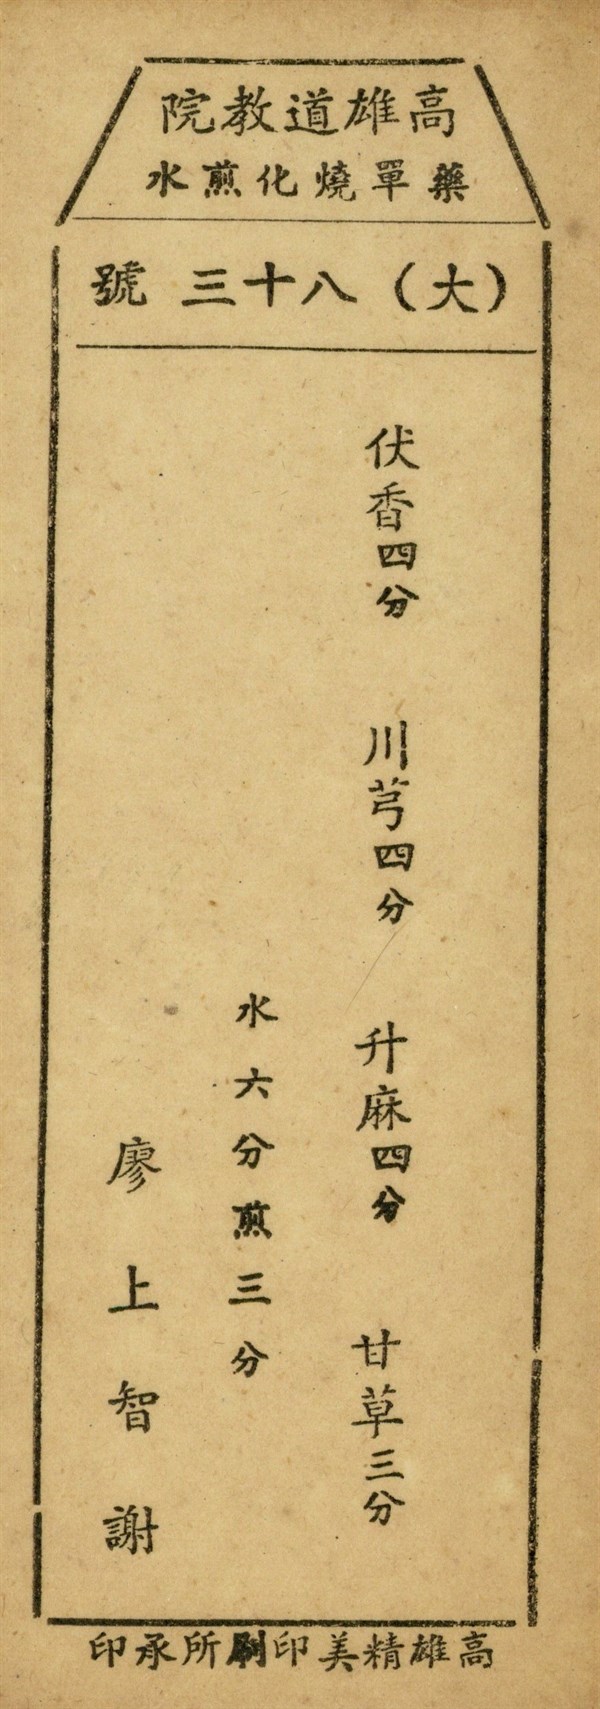 高雄道教院
藥單燒化煎水
（大）八十三號
伏香四分　川芎四分　升麻四分　甘草三分
水六分煎三分
廖上智謝
高雄精美印刷所承印